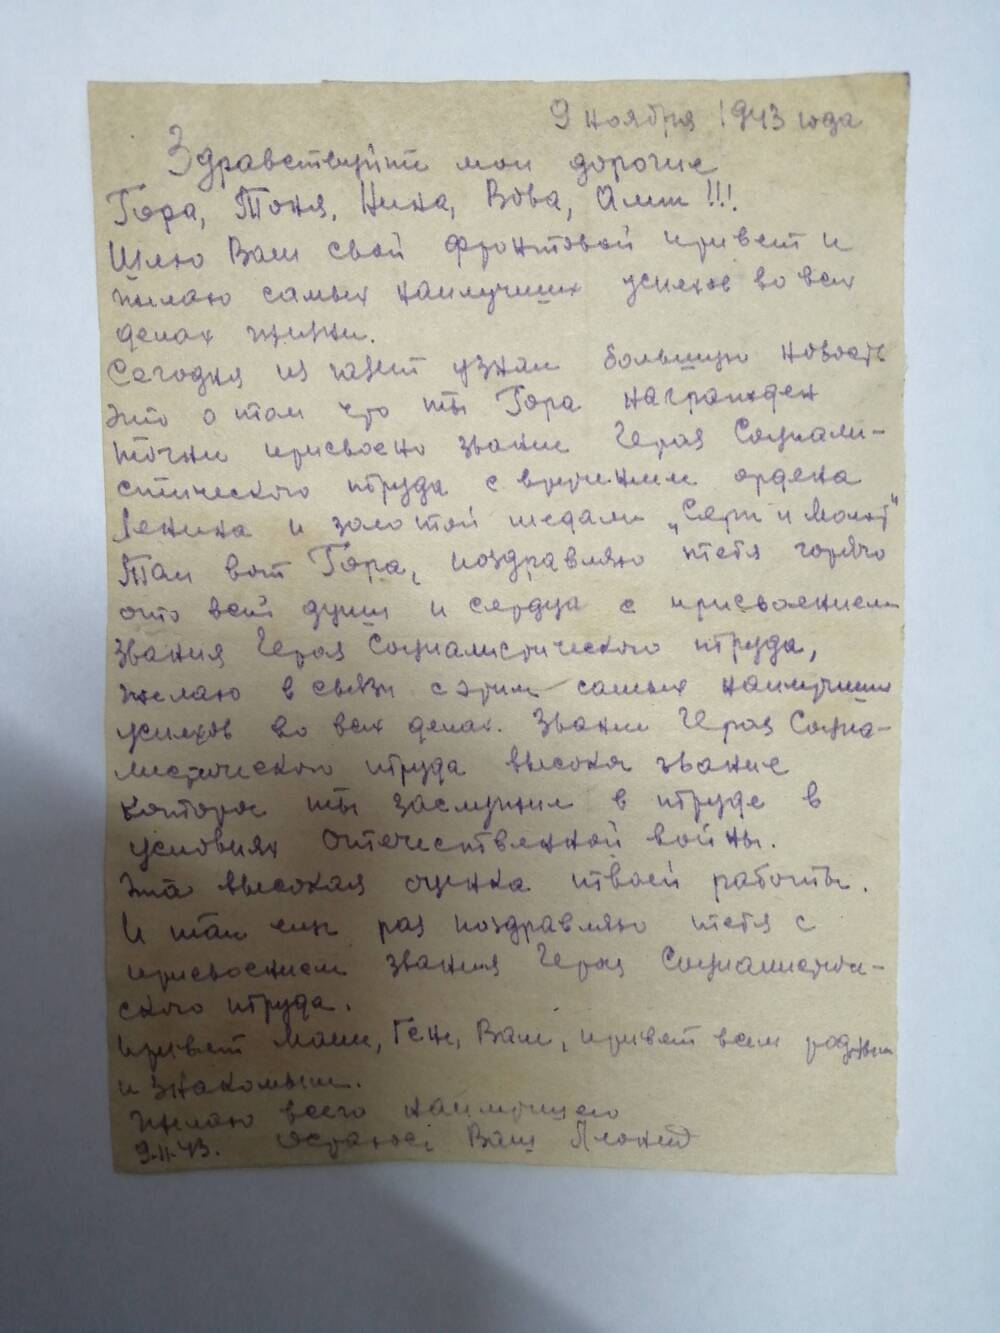 9 ноября 1943 года
Здравствуйте мои дорогие
Гора, Тоня, Нина, Вова, !!!
Шлю Вам свой фронтовой привет и
желаю самых наилучших успехов во всех
делах жизни.
Сегодня из газет узнал большую новость
это о том что ты Гора награжден
точнее присвоено звание Героя Социали-
стического труда с вручением ордена
Ленина и золотой медали „Серп и Молот"
Так вот Гора, поздравляю тебя горячо
ото всей души и сердца с присвоением
звания Героя Социалистического труда,
желаю в связи с этим самых наилучших
успехов во всех делах. Звание Героя Социа-
листического труда высокое звание
которое ты заслужил в труде в
условиях Отечественной войны.
Эта высокая оценка твоей работы.
И так еще раз поздравляю тебя с
присвоением звания Героя Социалистиче-
ского труда.
Привет Маше, Гене, Вале, привет всем родным
и знакомым.
Желаю всего наилучшего
9.11.43. Остаюсь Ваш Леонид